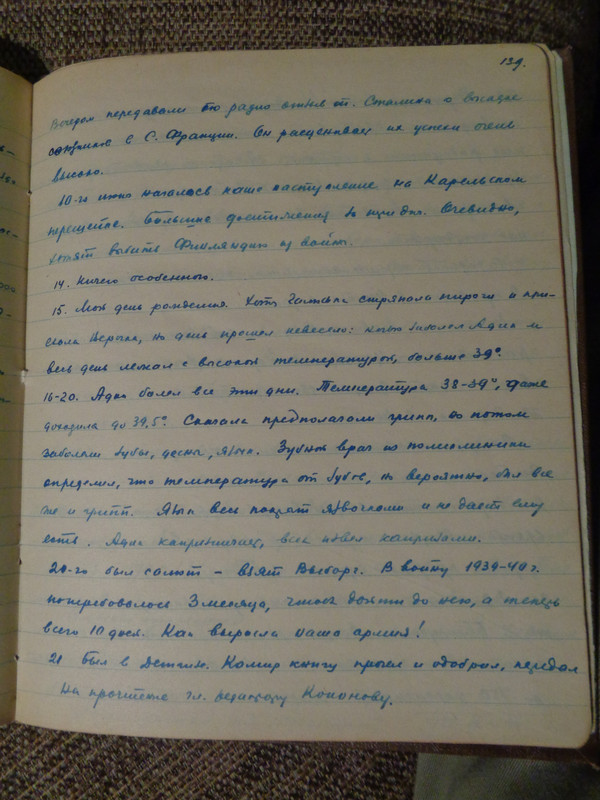 139.
Вечером передавали по радио ответ т. Сталина о высадке
союзников в С. Франции. Он расценивает их успехи очень
высоко.
10-го июня началось наше наступление на Карельском
перешейке. Большие достижения за три дня. Очевидно,
хотят выбить Финляндию из войны.
14. Ничего особенного.
15. Мой день рождения. Хоть Галюська стряпала пироги и при-
ехала Верочка, но день прошел невесело: ночью заболел Адик и
весь день лежал с высокой температурой, больше 39°.
16-20. Адик болел все эти дни. Температура 38-39°, даже
доходила до 39,5°. Сначала предполагали грипп, но потом
заболели зубы, десны, язык. Зубной врач из поликлиники
определил, что температура от зубов, но вероятно, был все
же и грипп. Язык весь покрыт язвочками и не дает ему
есть. Адик капризничает, всех извел капризами.
20-го был салют – взят Выборг. В войну 1939-40 г.
потребовалось 3 месяца, чтобы дойти до него, а теперь
всего 10 дней. Как выросла наша армия!
21 Был в Детгизе. Камир книгу прочел и одобрил, передал
на прочтение гл. редактору Кононову.